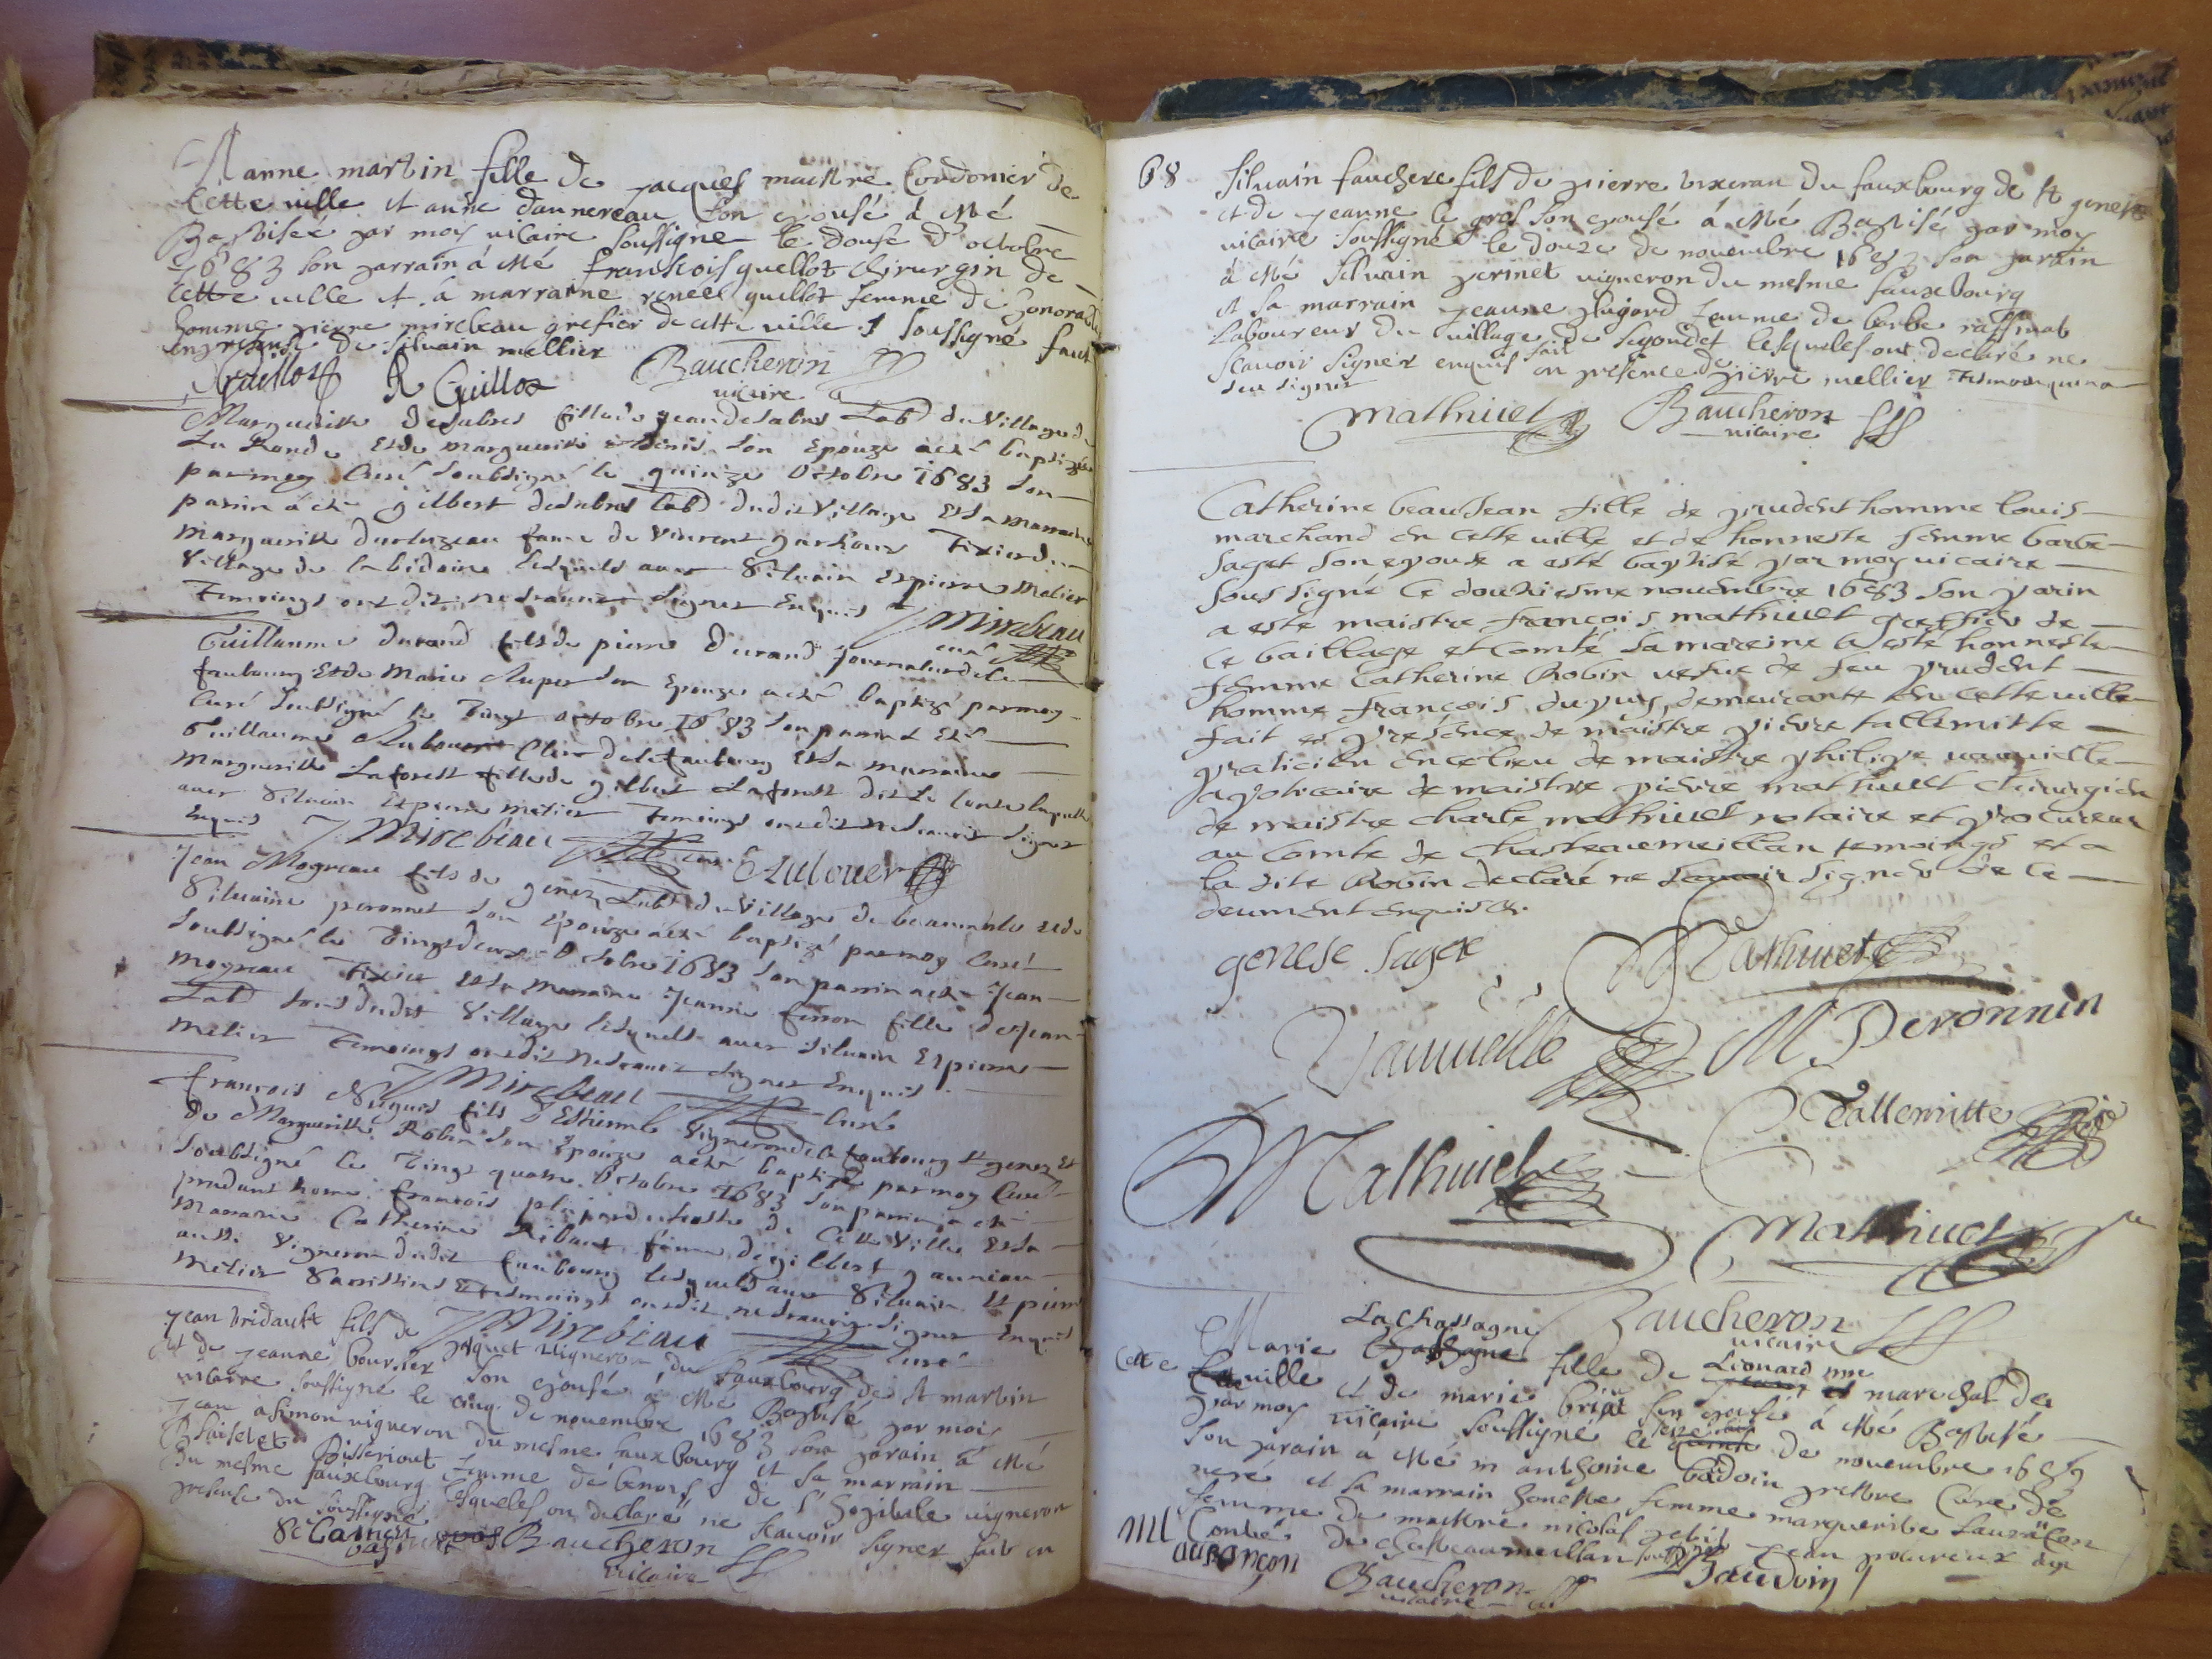 anne martin fille de jacques maistre Cordonier de
Cette ville et anne dannereau son epousé à Mé
Baptisée par moy vicaire soussigne le douse d'octobre
1683 son parrain à Mé franscois guellot chirurgin de
Cette ville et à marraine renee guillot femme de honorable
homme pierre mirebeau grefier de cette ville soussigné fait
en presense de siluain mellier
R Guillot
Baucheron
vicaire
Margueritte desabres fille de jean desabres Lab^r du Village de
La Ronde Et de marguerite denis son Epouze a esté baptizée
par moy Curé soubsigné le quinze Octobre 1683 son
parin a esté gilbert desabres lab^r dudit Village Et la marraine
marguerite durluzeau fame de Vincent Tixier du
Village de la bidoire lesquels avec Siluain Et pierre Metier
Temoings ont dit ne scavoir signer Enquis
J Mirebeau
curé
Guillaume durand fils de pierre durand journalier de ce
faubourg Et de Marie son Epouze a esté baptizé par moy
Curé soubsigné le Vingt octobre 1683 son parrain a Esté
Guillaume Aubouer Clerc de ce faubourg Et la marraine
marguerite Laforest fille de gilbert Laforest dit laquelle
avec Siluain Et pierre metier Temoings ont dit ne scavoir signer
Enquis J. Mirebeau curé Aubouer
Jean Mogneau fils de genez Lab^r du Village de et de
Siluaine peronnet son Epouze a esté baptizé par moy Curé
soubsigné le Vingt deux Octobre 1683 son parrin a esté Jean
mogneau Tixier et la marraine Jeanne fille de Jean
Lab^r tous dudit Village lesquels avec siluain Et pierre
metier Temoings ont dit ne scavoir signer Enquis
J Mirebeau Curé
francois Nugues fils d'Estienne Vigneron de ce faubourg St genez Et
de Marguerite Robin son Epouze a esté baptizé par moy Curé
soubsigné le Vingt quatre Octobre 1683 son parrain a esté
prudent home francois de Cette Ville Et la
Marraine Catherine Ribaut fame de gilbert
aussi Vigneron dudit faubourg lesquels avec Siluain Et pierre
metier Et temoings ont dit ne scavoir signer Enquis
J Mirebeau Curé
jean bridault fils de piquet vigneron du fauxbourg de st martin
et de jeanne boursier son epousé à Mé Baptisé par moi
vicaire soussigné le cinq de novembre 1683 son parain à Mé
jean asimon vigneron du mesme fauxbourg et sa marrain
femme de benois de l'hopitale vigneron
du mesme fauxbourg lesqueles on declaré ne scavoir signer fait en
presense du soussigné
Baucheron
vicaire
68 siluain fauchere fils de pierre vixeran du fauxbourg de st genest
et de jeanne le gros son epousé à Mé Baptisé par moy
vicaire soussigné le douze de novembre 1683 son parain
à Mé siluain perinet vigneron du mesme fauxbourg
et sa marrain jeanne femme de barbe raffinat
Laboureur du village de segondet lesqueles ont declaré ne
scavoir signer enquis fait en presence de pierre mellier
sceu signer
Mathiuet Baucheron
vicaire
Catherine beauJean fille de prudent homme louis
marchand en cette ville et de honneste femme barbe
saget son epouse a esté baptisé par moy vicaire
soussigné le dousiesme nouembre 1683 son parin
a esté maistre francois mathiuet greffier de
ce baillage et comté sa mareine a esté honneste
femme Catherine Robin vefue de feu prudent
homme francois dupuis demeurante en cette ville
fait en présence de maistre pierre tallemitte
praticien en ce lieu de maistre philipe vauuielle
apoticaire de maistre pierre mathiuet chirurgien
de maistre charle mathiuet notaire et procureur
au comté de chasteaumeillan temoings et a
la dite Robin declaré ne scauoir signer de ce
deument enquise
genese saget Mathiuet
Vauuielle M Peronnin
Tallemitte
Mathiuet
Mathiuet
Baucheron
vicaire
La Chassagne
Marie fille de Léonard marechal de
Cette ville et de marie briat son epousé à Mé Baptisé
par moy vicaire soussigné le de novembre 1683
son parain à Mé m anthoine bodoin prestre Curé de
neré et la marrain honeste femme marguerite
femme de maistre nicolas
Comté de chasteaumeillan
Baucheron
vicaire
Baudoin